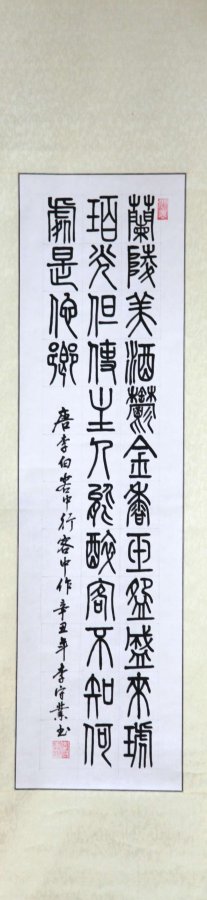 蘭陵美酒鬱金香玉盌盛來琥
珀光但使主人能醉客不知何
處是他鄉
唐李白客中行客中作辛丑年李守業书